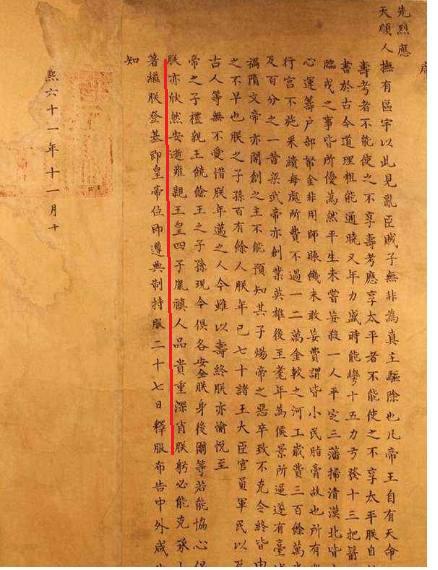 先烈應
天順人撫有區宇以此見亂臣賊子無非為真主驅除也凡帝王自有天命
壽考者不能使之不享壽考應享太平者不能使之不享太平朕自
書於古今道理粗能通曉又年力盛時能彎十五力弓發十三把箭
臨戎之事皆所優為然平生未嘗妄殺一人平定三藩掃清漠北皆
心運籌戶部帑金非用師賑饑未敢妄費謂皆小民脂膏故也所有
行宮不施采繢每處所費不過一二萬金較之河工歲費三百餘萬
及百分之一昔梁武帝亦創業英雄後至耄年為侯景所逼遂有臺
禍隋文帝亦開創之主不能預知其子煬帝之惡卒致不克令終皆由
之不早也朕之子孫百有餘人朕年已七十諸王大臣官員軍民以
古人等無不愛惜朕年邁之人今雖以壽終朕亦愉悅至
帝之子禮親王饒餘王之子孫現今俱各安全朕身後爾等若能協心保
朕亦欣然安逝雍親王皇四子胤禛人品貴重深肖朕躬必能克承
著繼朕登基即皇帝位即遵典制持服二十七日釋服布告中外咸
知
熙六十一年十一月十